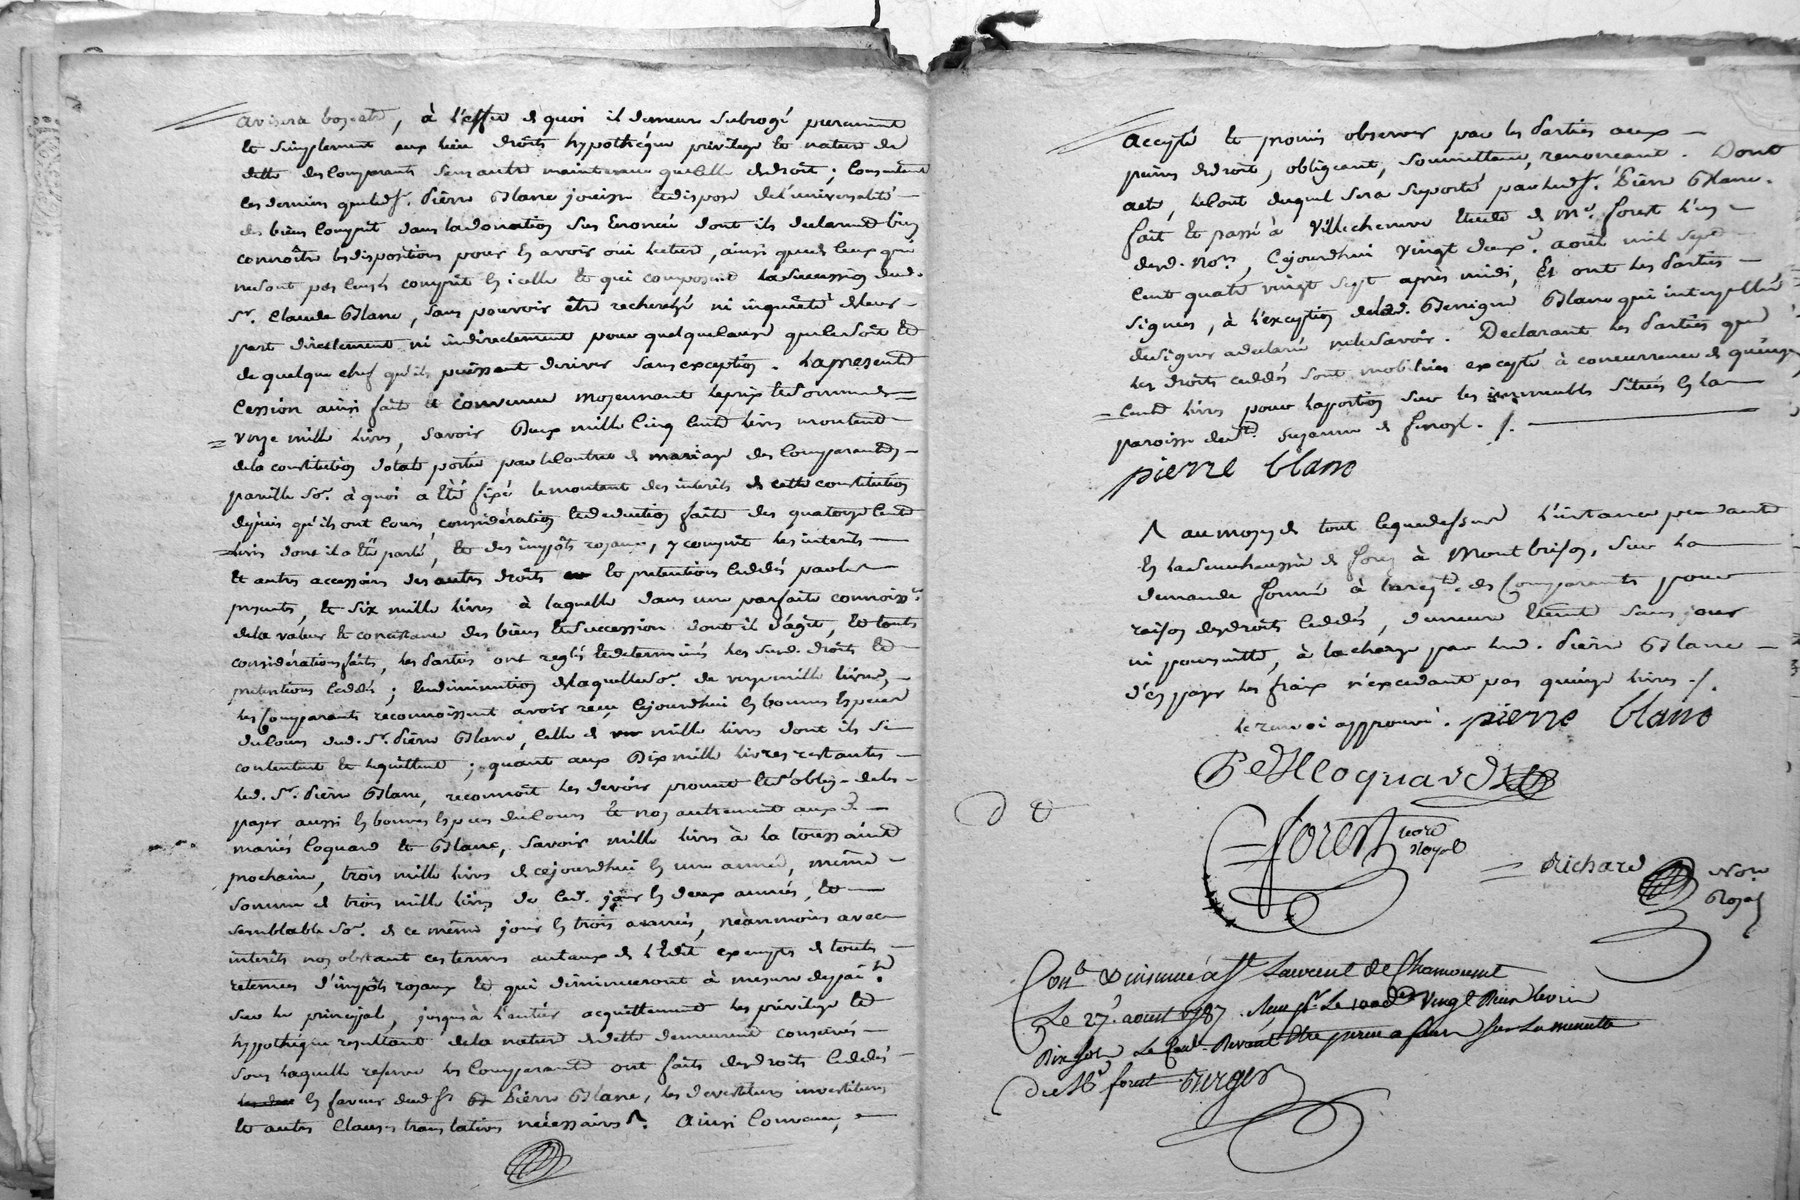 avisera bon etre, à l'effet de quoi il demeure subrogé purement
et simplement aux lieu droits hypothéque privilege et nature de
dette des comparants sans autre maintenue que celle de droit ; consentent
ces derniers que led. Sr. Pierre Blanc jouisse et dispose de l'universalité
des biens compris dans la donation sus enoncée dont ils declarent bien
connoître les dispositions pour en avoir oui lecture, ainsi que de ceux qui
ne sont pas censés compris en icelle et qui composent la succession dud.
Sr. Claude Blanc, sans pouvoir être recherché ni inquiété de leur
part directement ni indirectement pour quelque cause que ce soit et
de quelque chef qu'ils puissent deriver sans exception. La presente
cession ainsi faite et convenue moyennant le prix et somme de
onze mille livres, savoir Deux mille cinq cents livres montant
de la constitution dotale portée par le contrat de mariage des comparants,
pareille so.e à quoi a été fixé le montant des interets de cette constitution
depuis qu'ils ont cours, considération et deduction faite des quatorze cents
livres dont il a été parlé, et des impôts royaux, y compris les interets
et autres accessoirs des autres droits et pretentions cedés par les
presents, et six mille livres à laquelle dans une parfaite connoiss.ce
de la valeur et consistance des biens et succession dont il s'agit, et toutes
considérations faites, les parties ont reglés et determinés les susd. droits et
pretentions cedés ; en diminution de laquelle so.e de onze mille livres,
les comparants reconnoissent avoir reçu cejourdhui en bonnes especes
du cours dud. Sr. Pierre Blanc, celle de mille livres dont ils se
contentent et l'quittent ; quant aux Dix mille livres restantes
led. Sr. Pierre Blanc, reconnoit les devoir promet et s'oblige de les
payer aussi en bonnes especes du cours et non autrement aux d.
mariés Coquard et Blanc, savoir mille livres à la toussaint
prochaine, trois mille livres de cejourdhui en une année, même
somme de trois mille livres de ced. jour en deux années, et
semblable so.e de ce même jour en trois années, néanmoins avec
interets nonobstant ces termes au taux de l'Edit exempts de toutes
retenues d'impôts royaux et qui diminueront à mesure de paie.t
sur le principal, jusqu'à l'entier acquittement les privilege et
hypotheque resultant de la nature de dette demeurent conservés
sous laquelle reserve les comparants ont faits des droits cedés
en faveur dud. Sr. Pierre Blanc, les devestitures investitures
et autres clauses translatives nécessaires. Ainsi convenu,
accepté et promis observer par les parties aux
peines de droit, obligeant, soumettant, renonçant. Dont
acte, le cout duquel sera suporté par led. Sr. Pierre Blanc.
fait et passé à Villechenève etude de Me. forest l'un
desd. Nores, cejourdhui vingt deux aout mil sept
cent quatre vingt sept après midi, Et ont les parties
signées, à l'exception de lad. Benigne Blanc qui interpellée
de signer a declaré ne le savoir. Declarant les parties que
les droits cedés sont mobiliers excepté à concurrence de quinze
cents livres pour la portion sur les immeubles situés en la
paroisse de Ste. Suzanne de
pierre blanc
au moyen de tout ce que dessus l'instance pendante
en la senechaussée de forez à Montbrison, sur la
demande formée à la req.te des comparants pour
raison des droits cedés, demeure eteinte sans jour
ni poursuitte, à la charge par led. Pierre Blanc
d'en payer les fraix n'excedant pas quinze livres ./.
le renvoi approuvé. pierre blanc
Coquard
forest nore royal
Richard Nore Royal
Con.lé & insinué a St Laurent de Chamousset
Le 27. aoust 1787. Reçu
Dix sols
de Me forest Burger